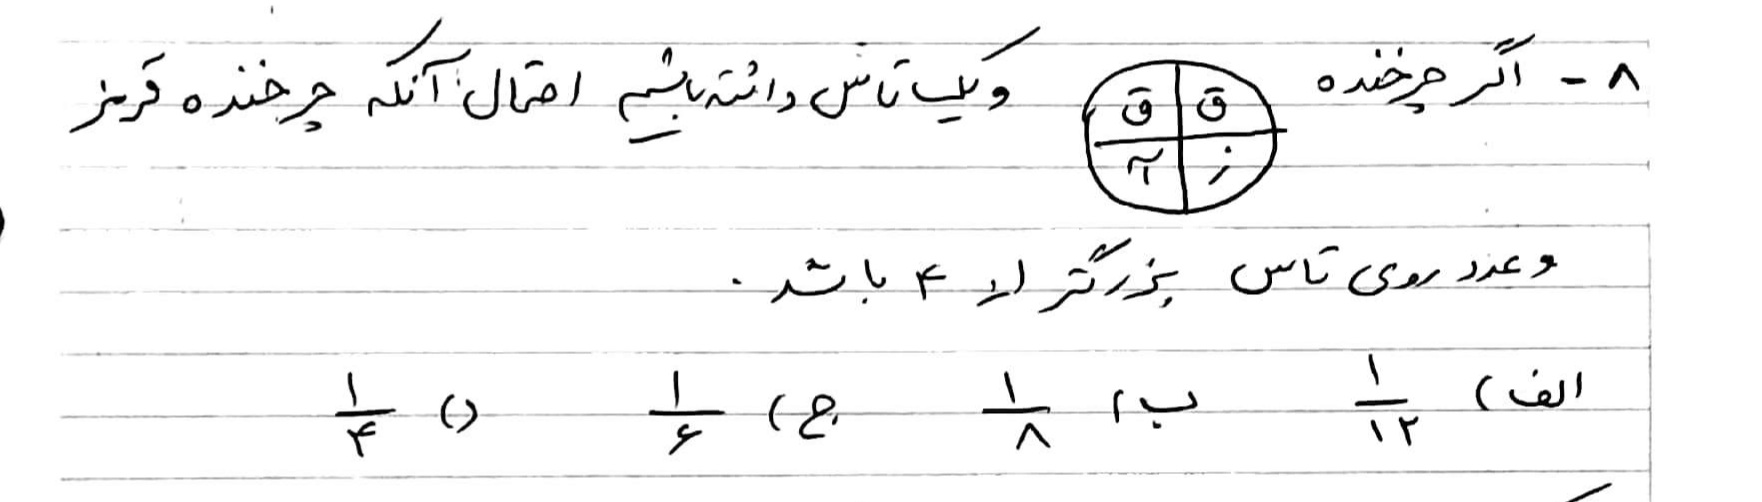 ۸ - اگر چرخنده ق ق آ ز و یک تاس داشته باشیم احتمال آنکه چرخنده قرمز
و عدد روی تاس بزرگتر از ۴ باشد.
الف) ۱/۱۲ ب) ۱/۸ ج) ۱/۶ د) ۱/۴